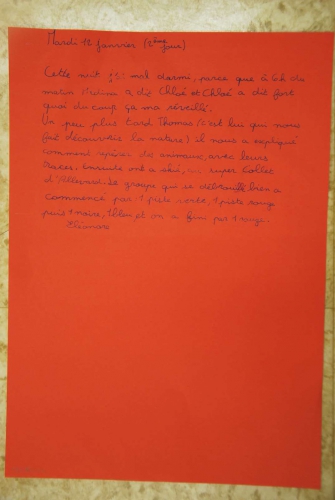 Mardi 12 janvier (2ème jour)
Cette nuit j'ai mal dormi, parce que à 6h du
matin a dit Chloé et Chloé a dit fort
quoi du coup ça ma réveillé.
Un peu plus tard Thomas (c'est lui qui nous
fait découvrir la nature) il nous a expliqué
comment repérer des animaux, avec leurs
traces. Ensuite on a skié, super Collet
d'Allevard. Le groupe qui se débrouille bien a
commencé par: 1 piste verte, 1 piste rouge
puis 1 noire, 1 et on a fini par 1 rouge.
Eléonore